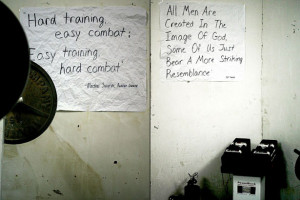 "Hard training,
easy combat;
Easy training,
hard combat"
All Men Are
Created In The
Image Of God,
Some Of Us Just
Bear A More Striking
Resemblance